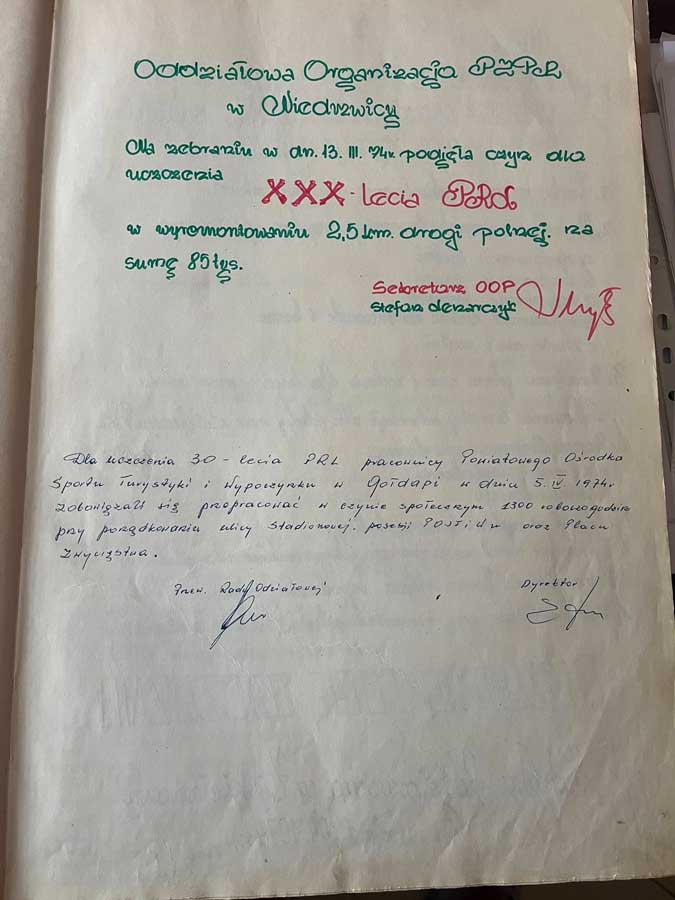 Oddziałowa Organizacja PZPR
w Niedrzwicy
Na zebraniu w dn. 13. III. 74r. podjęła czyn dla
uczczenia
XXX-lecia PRL
w wyremontowaniu 2,5 km. drogi polnej. na
sumę 85 tyś.
Sekretarz OOP
Stefan
Dla uczczenia 30-lecia PRL pracownicy Powiatowego Ośrodka
Sportu Turystyki i Wypoczynku w Gołdapi w dniu 5. IV. 1974r
zobowiązali się przepracować w czynie społecznym 1300 roboczogodzin
przy porządkowaniu ulicy Stadionowej. posesji POSTiW oraz Placu
Zwycięstwa.
Przew. Rady Odziałowej
Dyrektor